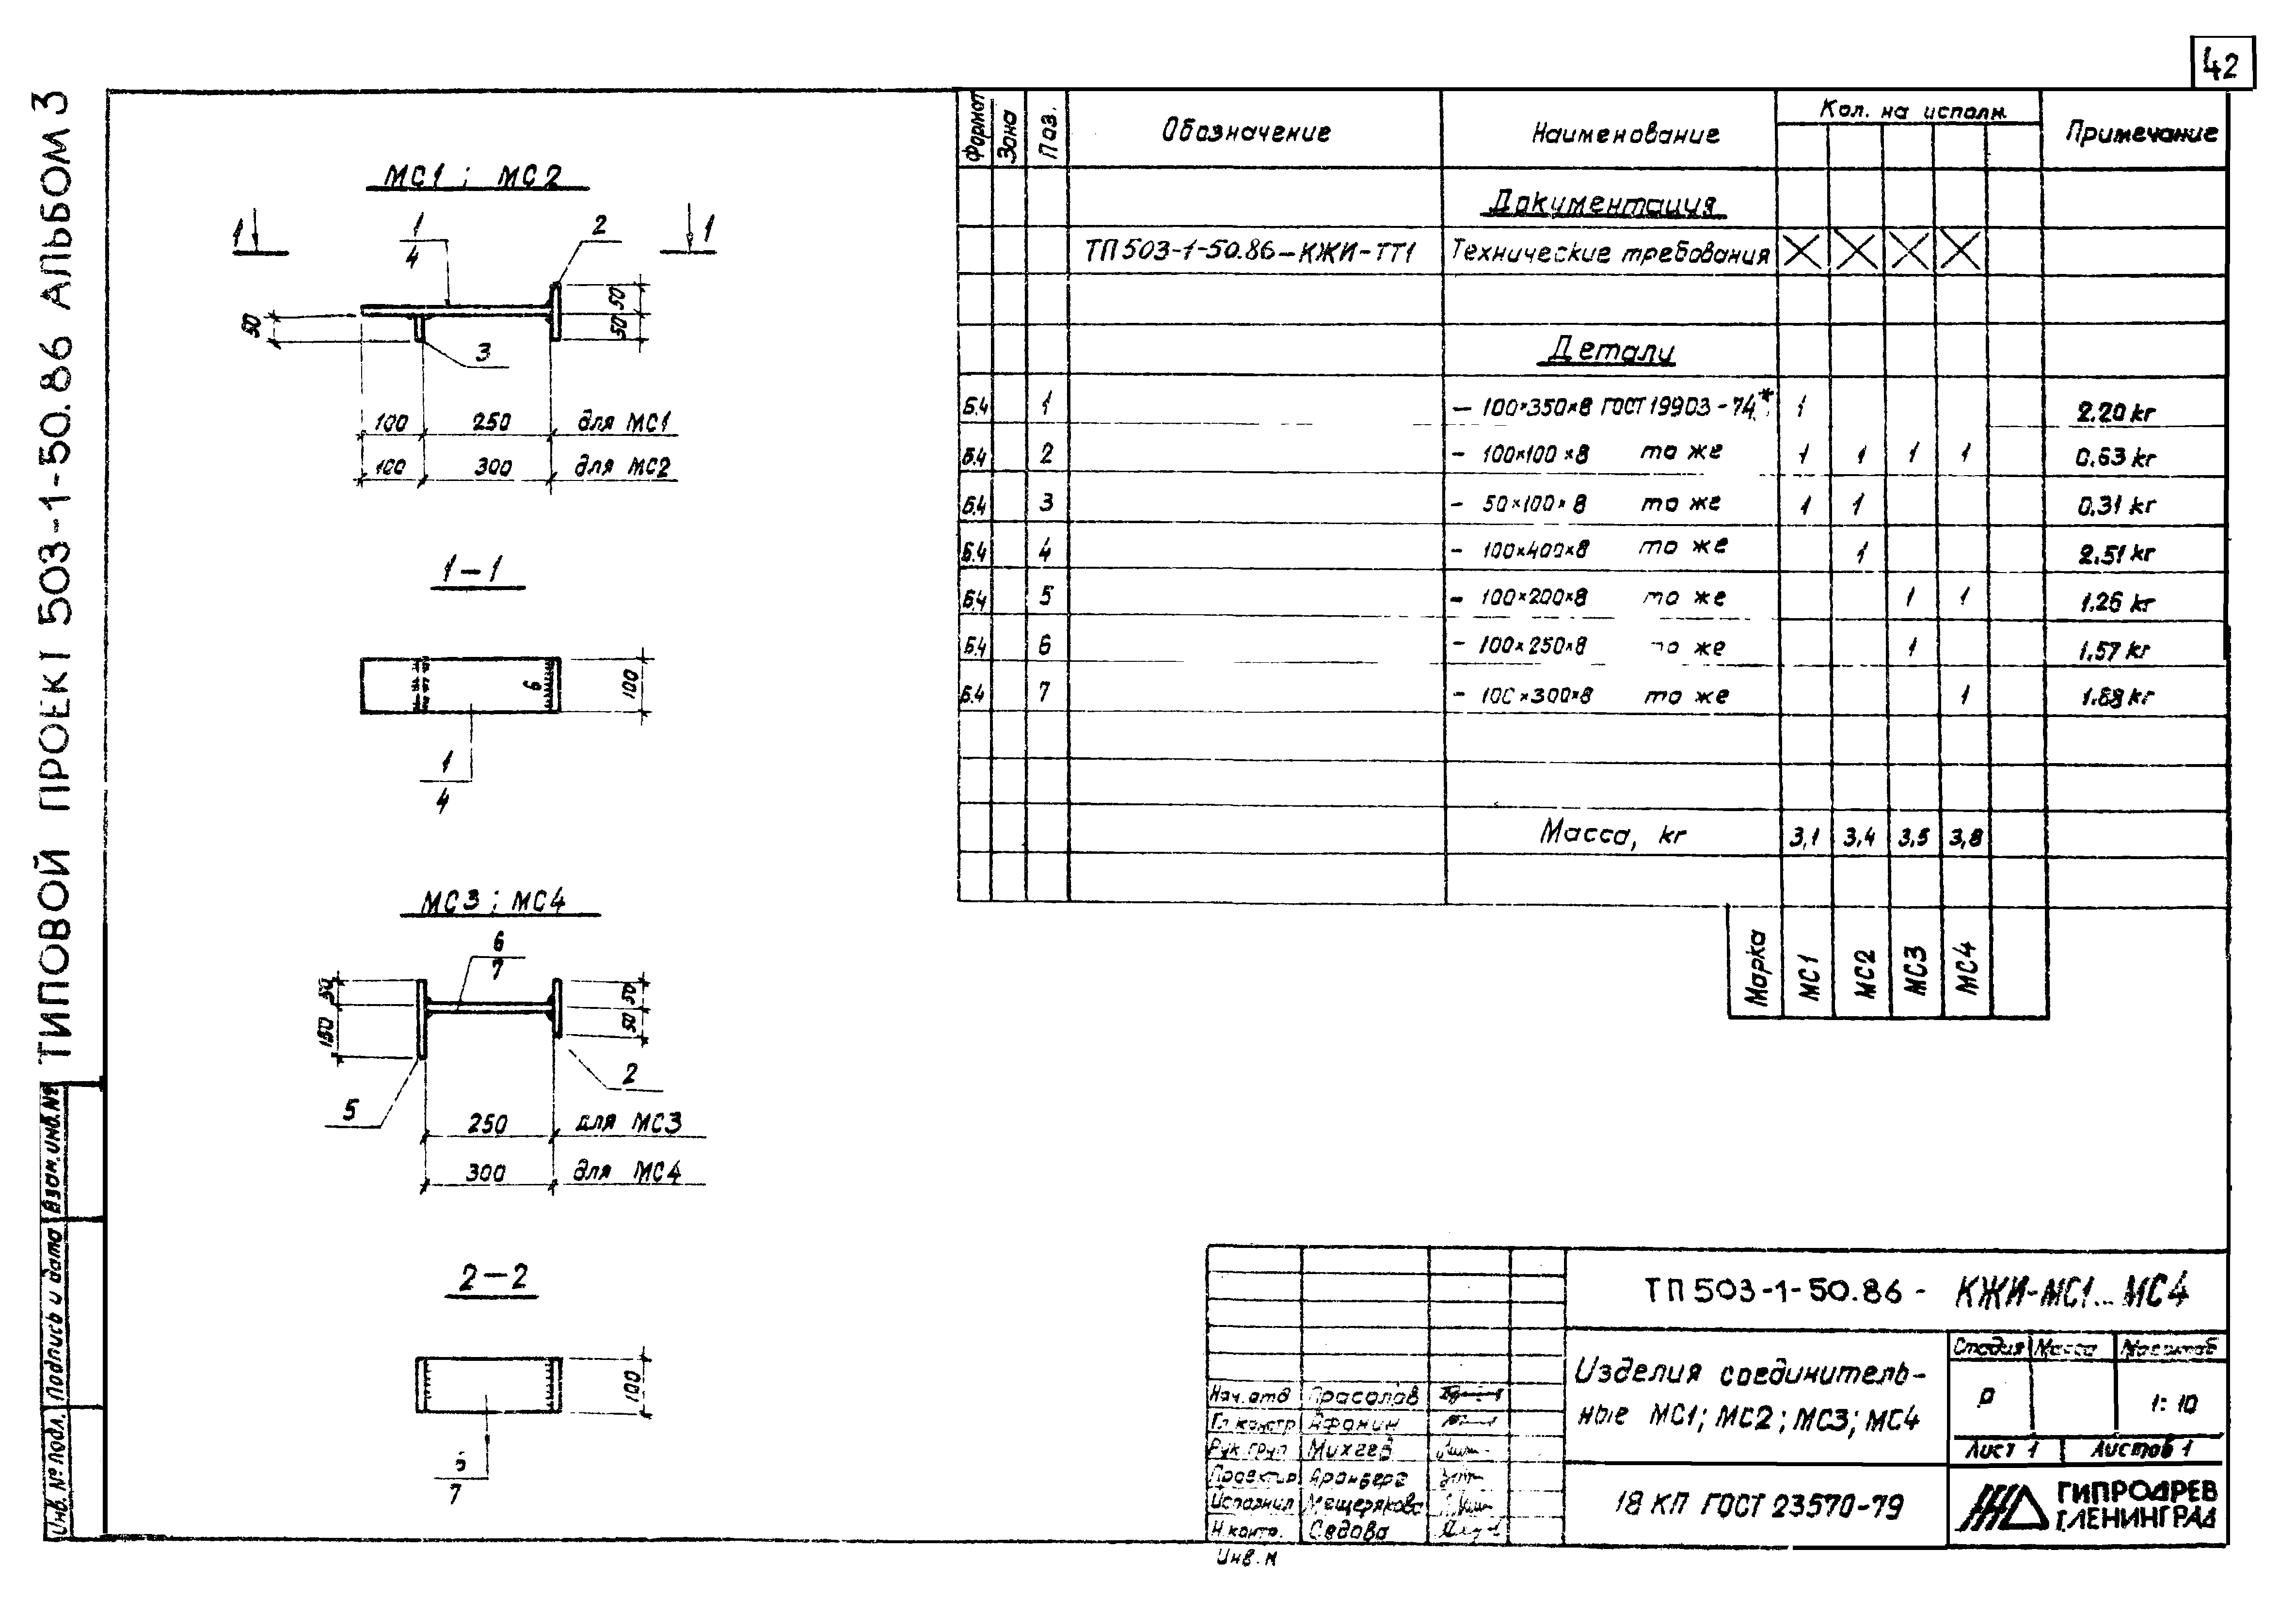 42
ТИПОВОЙ ПРОЕКТ 503-1-50.86 АЛЬБОМ 3
МС1 ; МС2
1 1
1
4
2
3
50
50
50
100 250 для МС1
100 300 для МС2
1-1
6
100
1
4
МС3 ; МС4
6
7
50
150
50
50
2
5
250 для МС3
300 для МС4
2-2
100
6
7
Формат Зона Поз. Обозначение Наименование Кол. на исполн. Примечание
Документация
ТП 503-1-50.86-КЖИ-ТТ1 Технические требования
Детали
Б.4 1 - 100×350×8 ГОСТ 19903-74* 1 2.20 кг
Б.4 2 - 100×100×8 то же 1 1 1 1 0.63 кг
Б.4 3 - 50×100×8 то же 1 1 0.31 кг
Б.4 4 - 100×400×8 то же 1 2.51 кг
Б.4 5 - 100×200×8 то же 1 1 1.26 кг
Б.4 6 - 100×250×8 то же 1 1.57 кг
Б.4 7 - 100×300×8 то же 1 1.88 кг
Масса, кг 3,1 3,4 3,5 3,8
Марка МС1 МС2 МС3 МС4
Взам.инв.№
Подпись и дата
Инв. № подл.
ТП 503-1-50.86 - КЖИ-МС1...МС4
Изделия соединитель-
ные МС1; МС2; МС3; МС4
Стадия Масса Масштаб
Р 1:10
Лист 1 Листов 1
18 КП ГОСТ 23570-79
ГИПРОДРЕВ
Г.ЛЕНИНГРАД
Нач.отд Прасолов
Гл.констр Афонин
Рук.груп Михеев
Проектир Аронберг
Исполнил Мещерякова
Н.контр. Седова
Инв.н